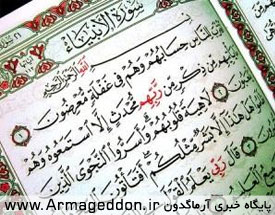 سورة الأنبياء
بسم الله الرحمن الرحيم
اقترب للناس حسابهم وهم في غفلة معرضون
من ذكر من ربهم محدث إلا استمعوه وهم
لاهية قلوبهم وأسروا النجوى الذين
هذا إلا بشر مثلكم أفتأتون
قال ربي يعلم القول
www.Armageddon.ir پایگاه خبری آرماگدون